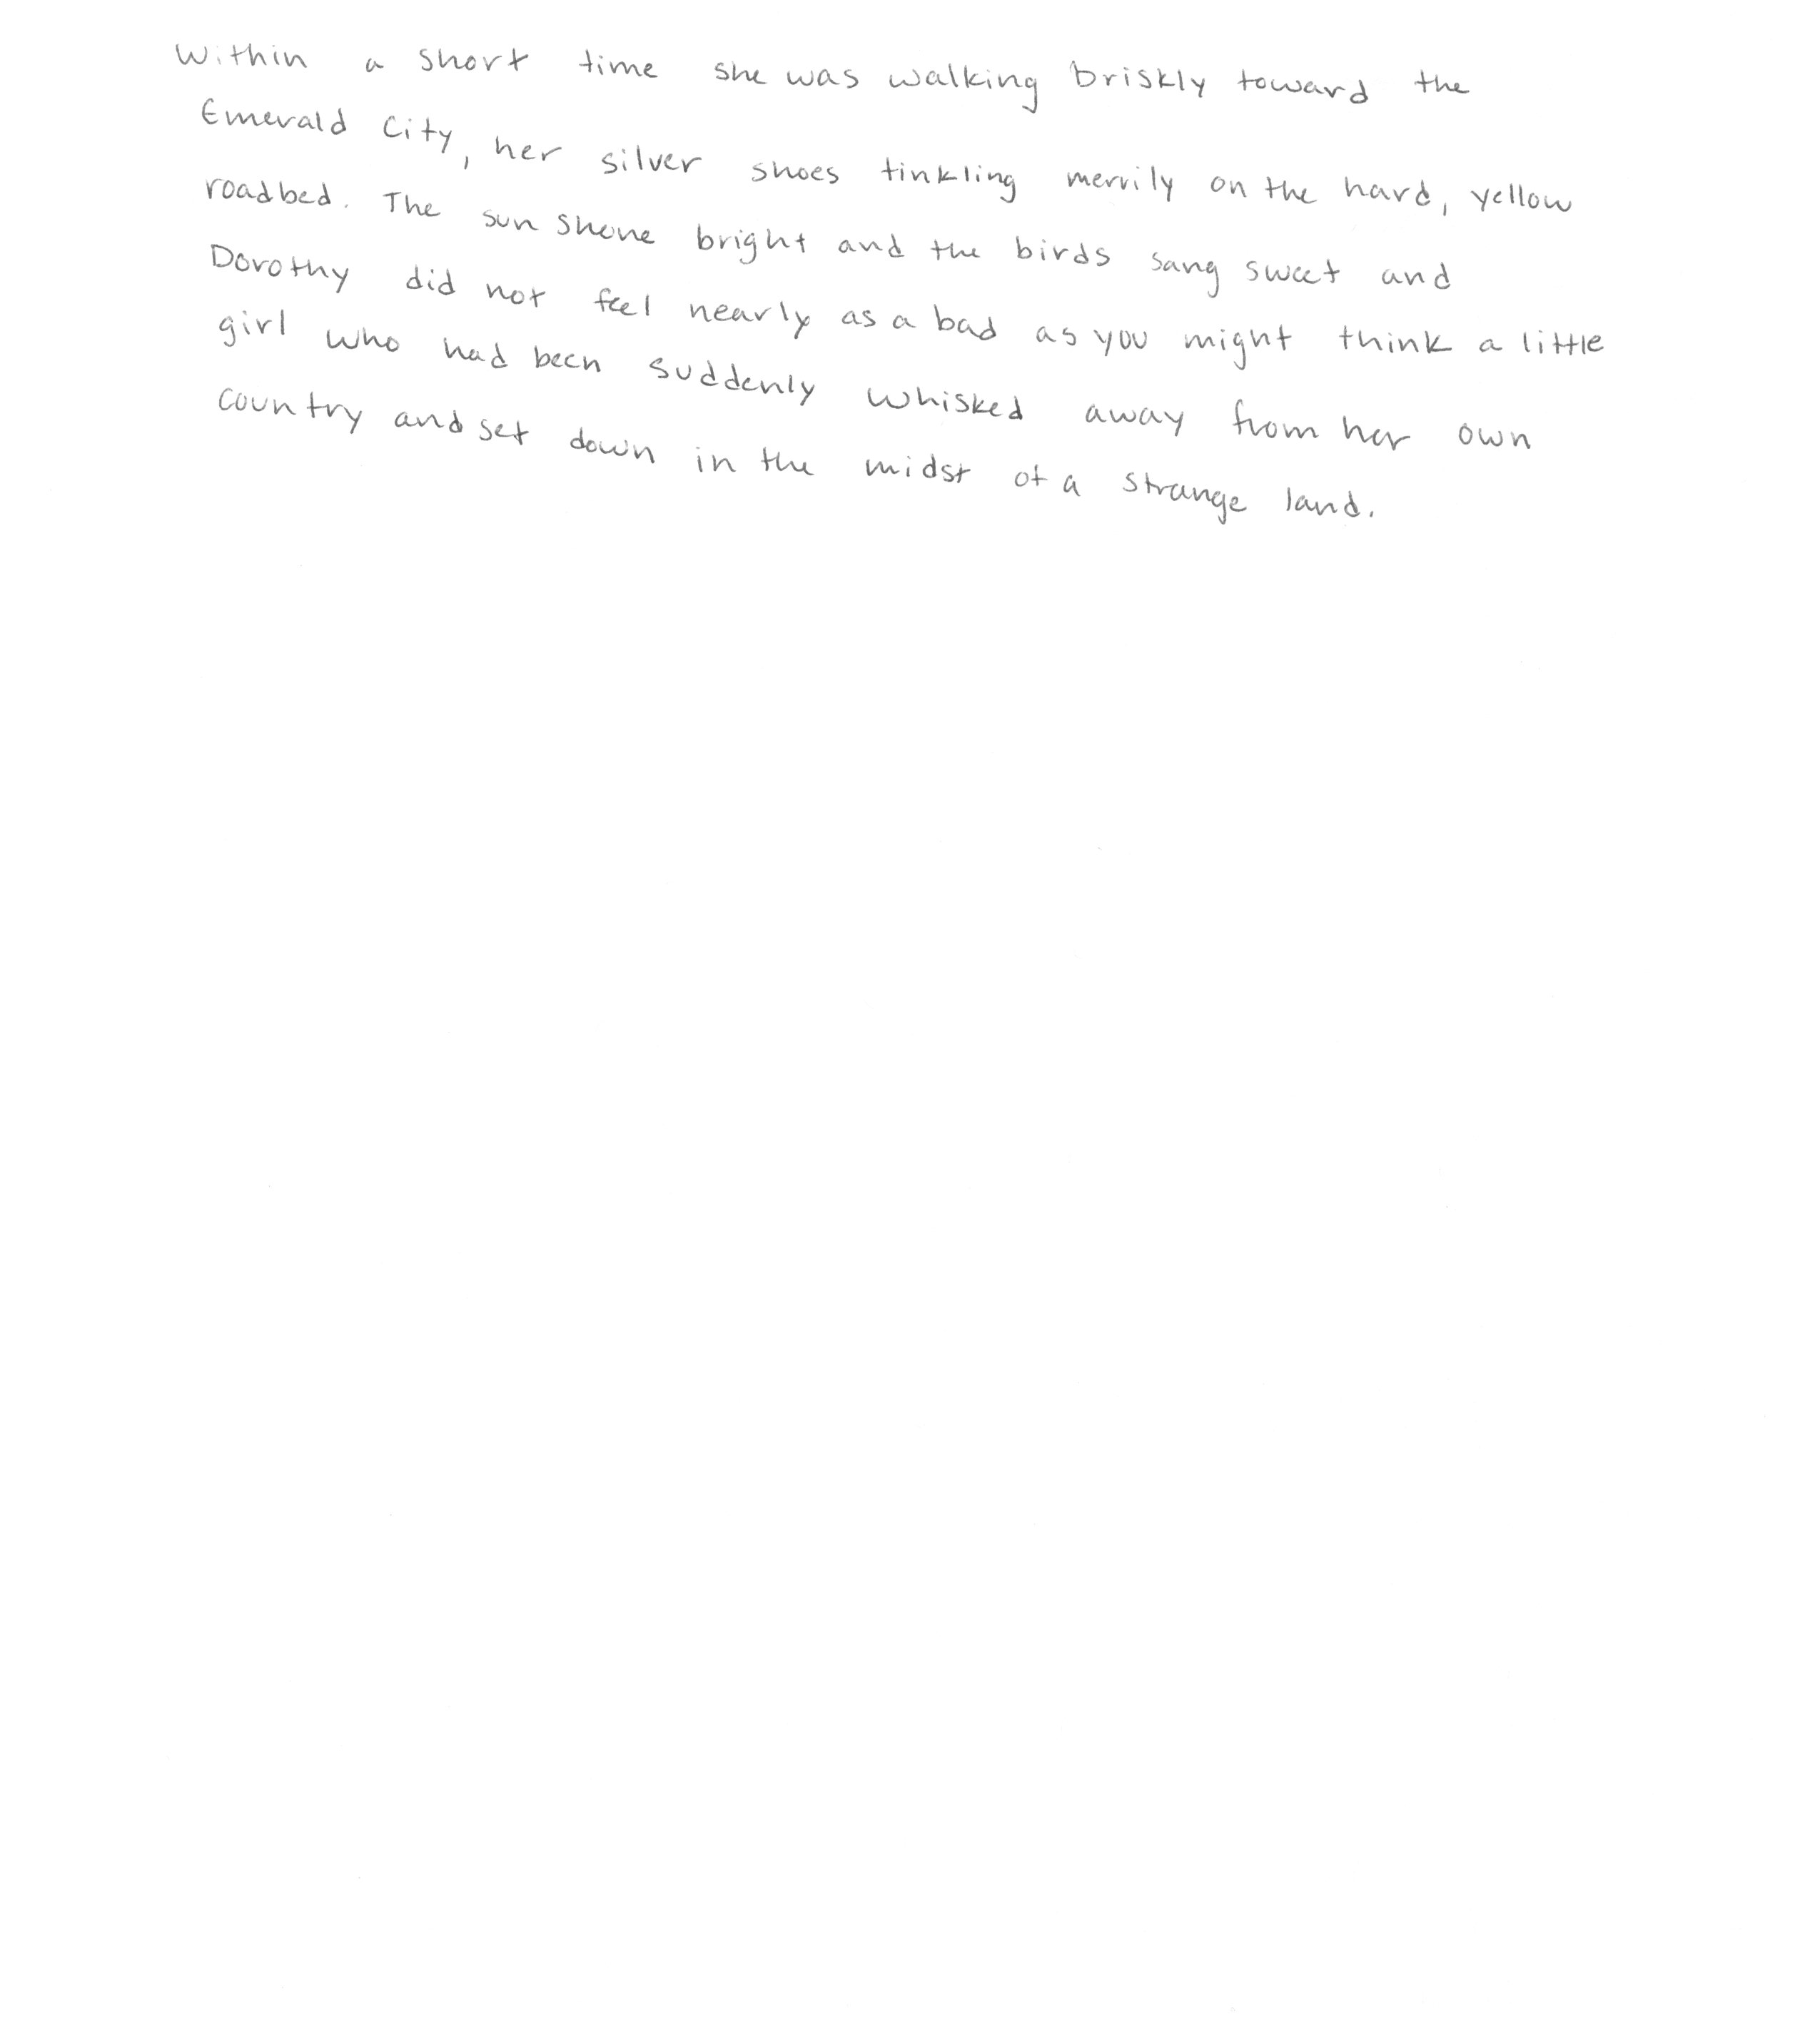 Within a short time she was walking briskly toward the
Emerald City, her silver shoes tinkling merrily on the hard, yellow
roadbed. The sun shone bright and the birds sang sweet and
Dorothy did not feel nearly as a bad as you might think a little
girl who had been suddenly whisked away from her own
country and set down in the midst of a strange land.